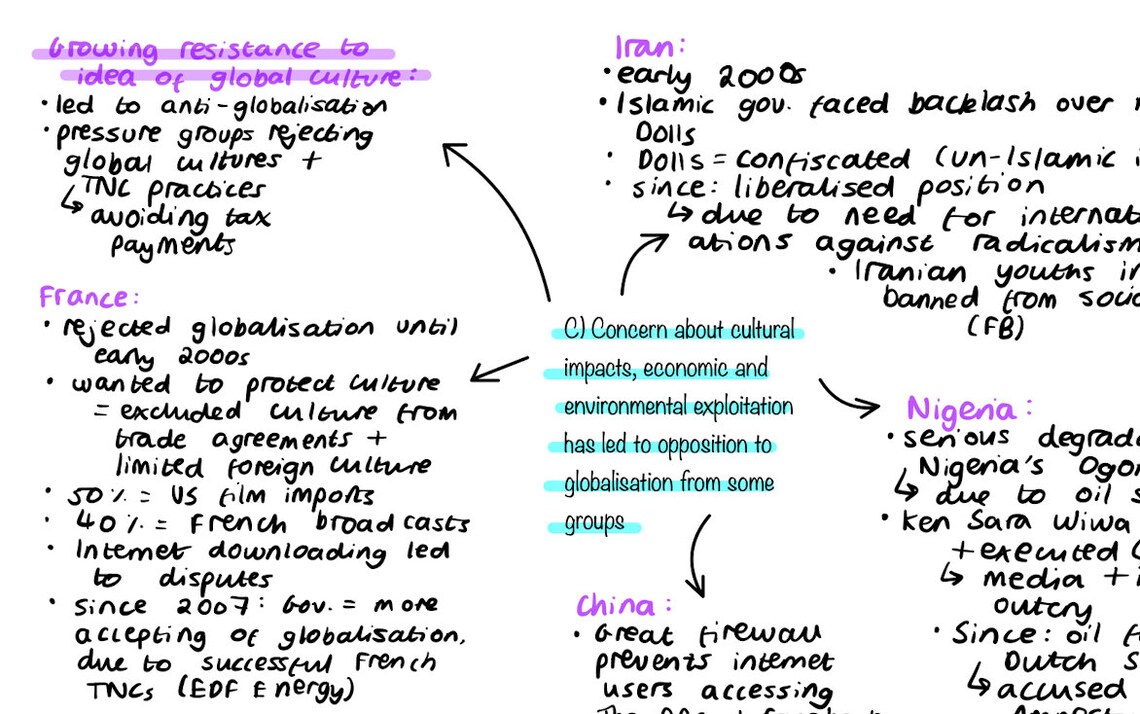 Growing resistance to
idea of global culture:
• led to anti-globalisation
• pressure groups rejecting
global cultures +
↳ TNC practices
↳ avoiding tax
payments
France:
• rejected globalisation until
early 2000s
• wanted to protect culture
= excluded culture from
trade agreements +
limited foreign culture
• 50% = US film imports
• 40% = French broadcasts
• Internet downloading led
to disputes
• since 2007: Gov. = more
accepting of globalisation,
due to successful French
TNCs (EDF Energy)
C) Concern about cultural
impacts, economic and
environmental exploitation
has led to opposition to
globalisation from some
groups
Iran:
• early 2000s
• Islamic gov. faced backlash over
Dolls
• Dolls = confiscated (un-Islamic
• since: liberalised position
↳ due to need for internat
ations against radicalism
• Iranian youths
banned from
(FB)
Nigeria:
• serious degrad
Nigeria's Ogon
↳ due to oil
• Ken Sara Wiwa
+ executed
↳ media +
outcry
• Since: oil
Dutch
↳ accused
China:
• Great firewall
prevents internet
users accessing